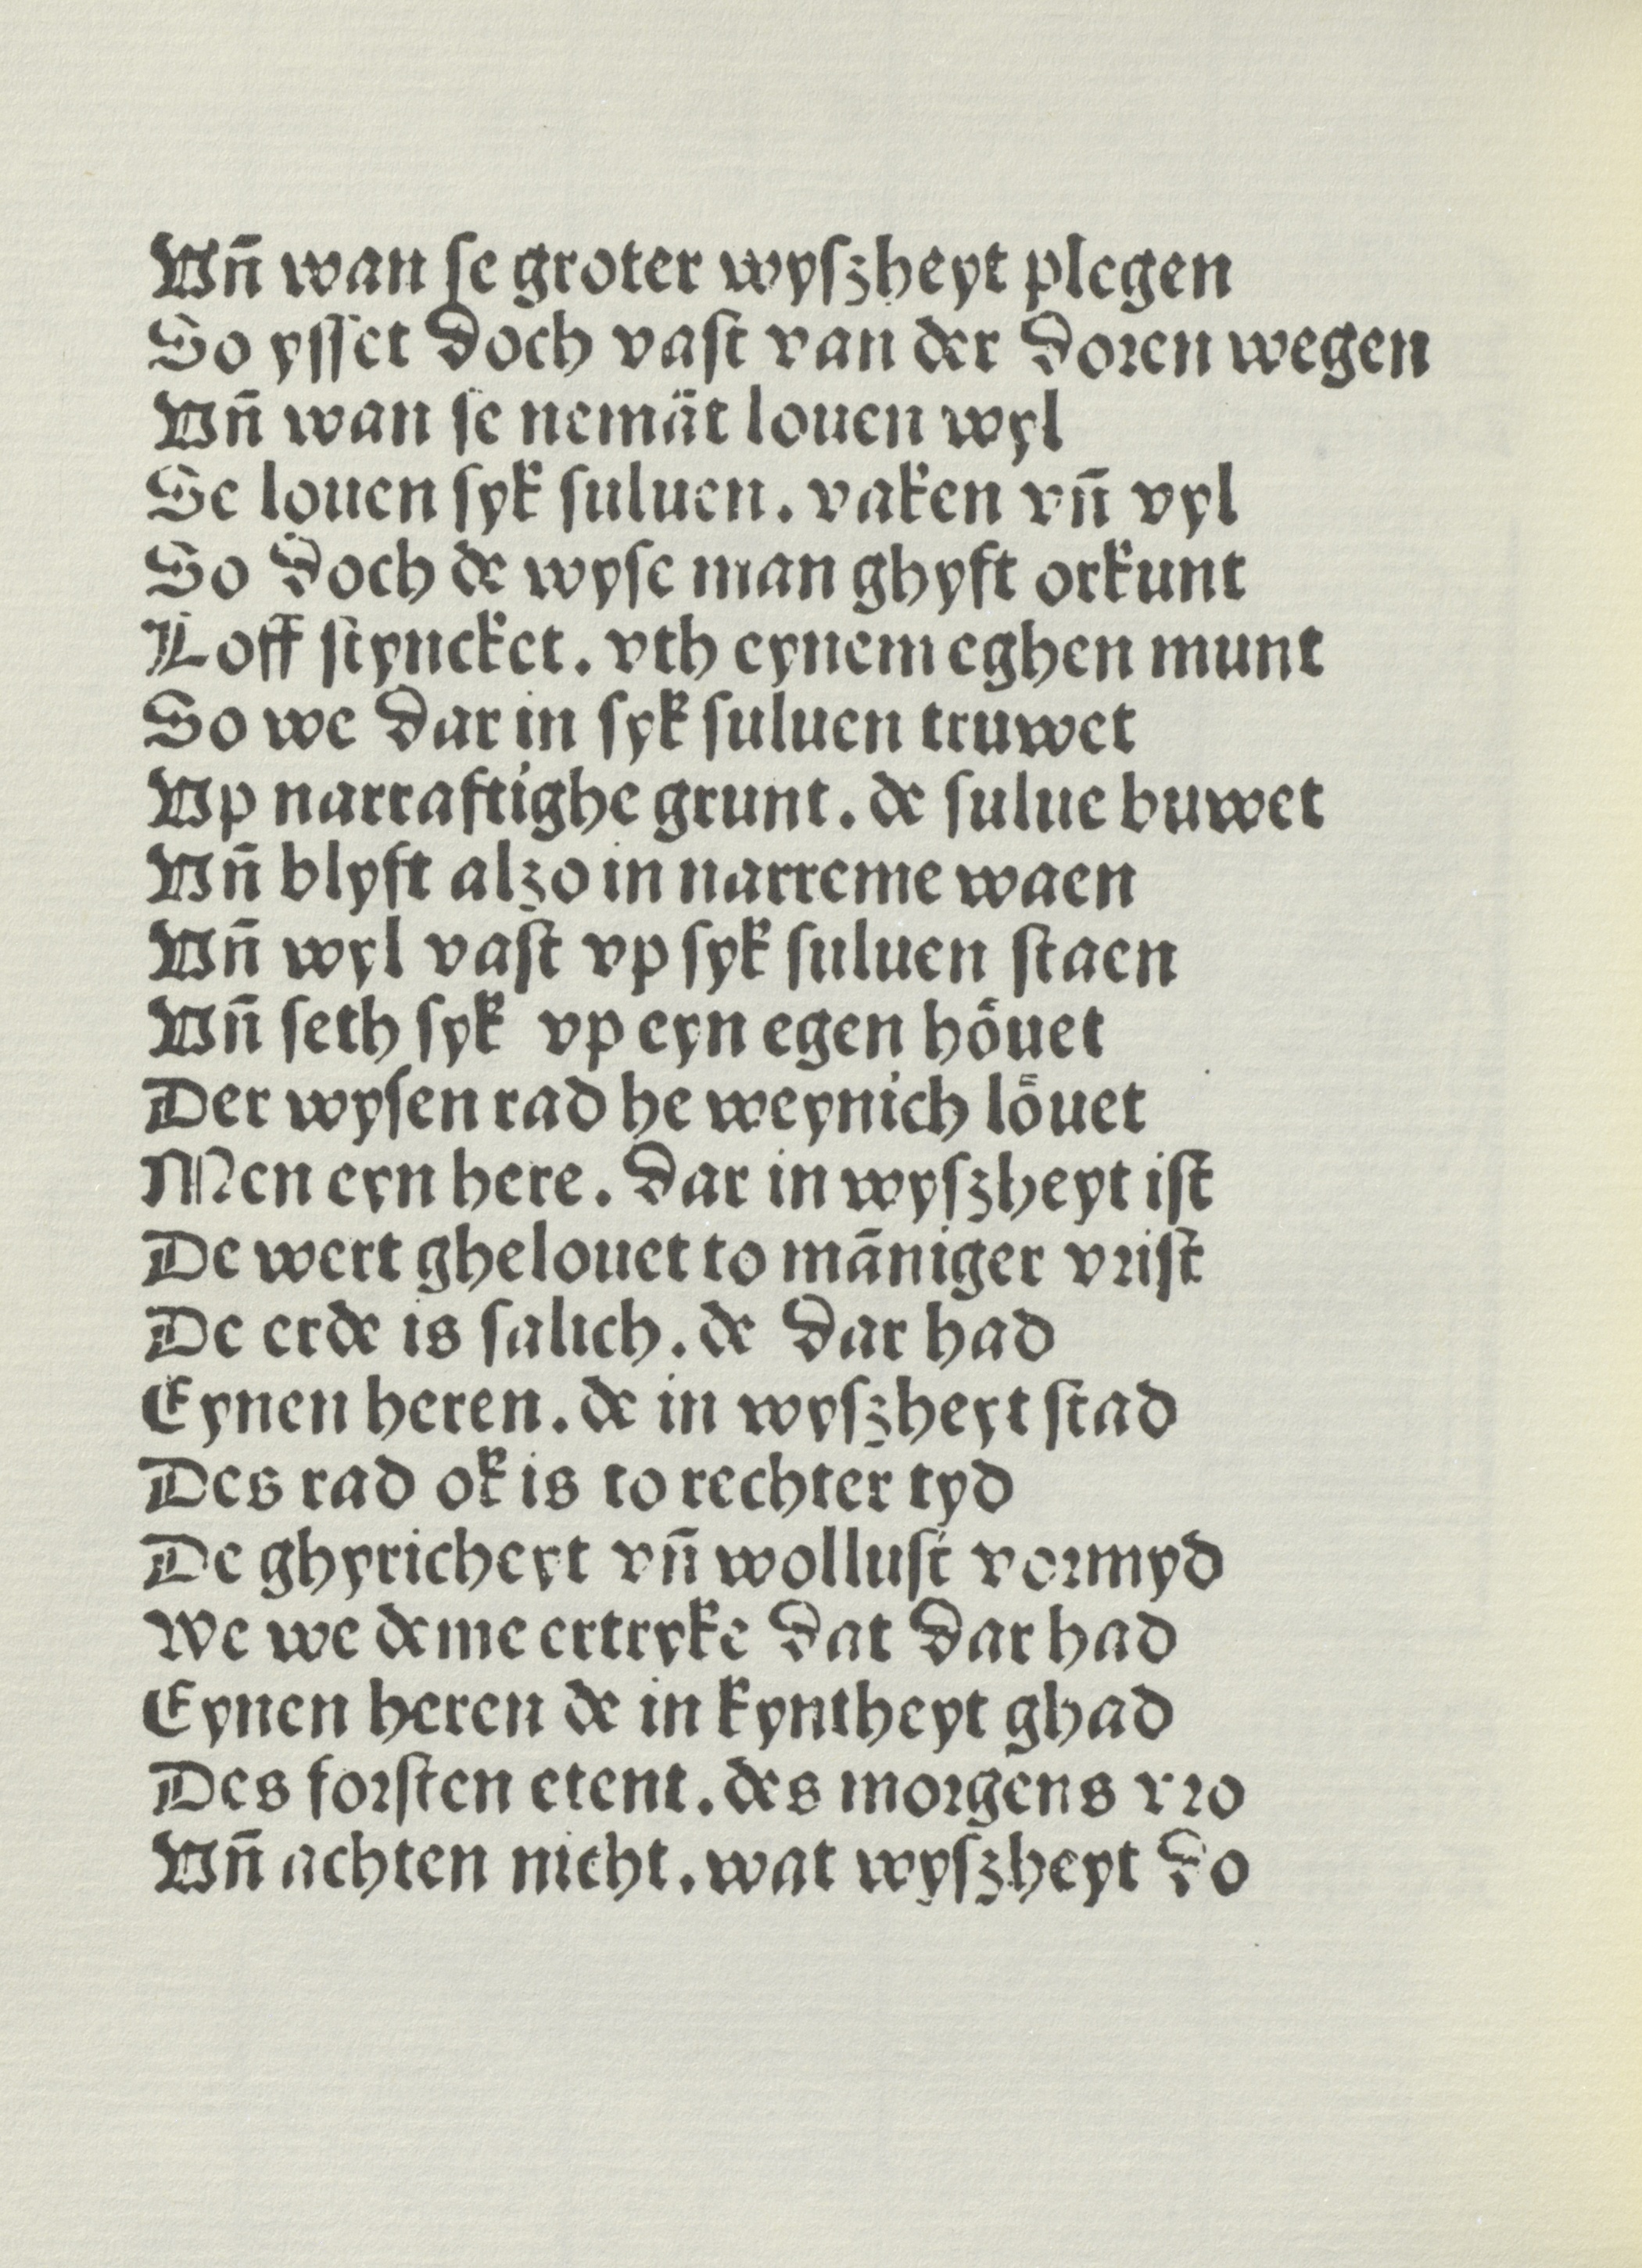 Vn̄ wan ſe groter wyſzheyt plegen
So yſſet doch vaſt van der doꝛen wegen
Vn̄ wan ſe nemāt louen wyl
Se louen ſyk ſuluen. vaken vn̄ vyl
So doch de wyſe man ghyft orkunt
Loff ſtyncket. vth eynem eghen munt
So we dar in ſyk ſuluen truwet
Vp narraftighe grunt. de ſulue buwet
Vn̄ blyft alzo in narreme waen
Vn̄ wyl vaſt vp ſyk ſuluen ſtaen
Vn̄ ſeth ſyk vp eyn egen hoͤuet
Der wyſen rad he weynich loͤuet
Men eyn here. dar in wyſzheyt iſt
De wert ghelouet to māniger vꝛiſt
De erde is ſalich. de dar had
Eynen heren. de in wyſzheyt ſtad
Des rad ok is to rechter tyd
De ghyricheyt vn̄ wolluſt voꝛmyd
We we deme ertryke dat dar had
Eynen heren de in kyntheyt ghad
Des foꝛſten etent. des moꝛgens vꝛo
Vn̄ achten nicht. wat wyſzheyt do